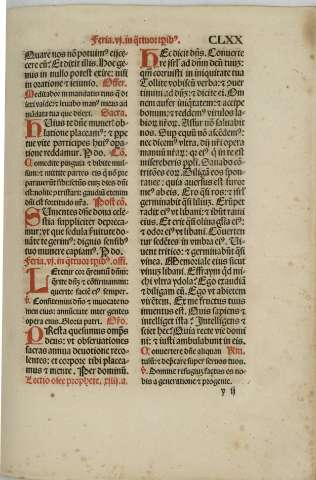 Feria. vj. in q̄tuor tp̄ibꝰ. CLXX
Quare nos nō potuimꝰ eijce-
cere eū? Et dixit illis. Hoc ge-
nus in nullo potest exire: nisi
in oratione ⁊ ieiunio. Offer.
Meditabor in mandatis tuis que di
lexi valde: ⁊ leuabo manꝰ meas ad
mādata tua que dilexi. Secreta.
Huius te dn̄e muneris ob-
latione placeamꝰ: ⁊ ppe
tue vite participes huiꝰ opa-
tione reddamur. P. do. Cō.
Comedite pinguia ⁊ bibite mul-
sum: ⁊ mittite partes eis qui nō pre
parauerūt sibi: sctūs eni dies dn̄i
est nolite ɔtristari: gaudiū etenim
dn̄i est fortitudo nr̄a. Post cō.
Sumentes dn̄e dona cele-
stia suppliciter depreca-
mur: vt que sedula seruitute do-
nāte te gerimꝰ: dignis sensibꝰ
tuo munere capiamꝰ. P. do.
Feria. vj. in q̄tuor tp̄ibꝰ. offi.
Letetur cor querentiū dn̄m:
querite dn̄m ⁊ ɔfirmamini:
querite faciē eiꝰ semper.
v̄. Confitemini dn̄o ⁊ inuocate no
men eius: annūciate inter gentes
opera eius. Gloria patri. Oro.
Presta quesumus omp̄s
deus: vt obseruationes
sacras annua deuotione reco-
lentes: et corpore tibi placea-
mus ⁊ mente. Per dominū.
Lectio osee prophete. xiiij. a.
Hec dicit dn̄s. Conuerte
re isrl̄ ad dn̄m deū tuū:
qm̄ corruisti in iniquitate tua
Tollite vobiscū verba: ⁊ ɔuer-
timini ad dn̄m: ⁊ dicite ei. Om
nem aufer iniqtatem: ⁊ accipe
bonum: ⁊ reddemꝰ vitulos la-
biorū nr̄oꝝ. Assur nō saluabit
nos. Sup equū nō ascēdemꝰ:
nec dicemꝰ vltra, dij nr̄i opera
manuū nr̄aꝝ: qꝛ eiꝰ qui in te est
misereberis pplli. Sanabo cō-
tritōes eoꝝ. Diligā eos spon-
tanee: quia auersus est furor
meus ab eis. Ero q̄si ros ⁊ isrl̄
germinabit q̄si lilium. Erūpet
radix eiꝰ vt libani: ⁊ ibūt rami
eius. Et erit q̄si oliua gl̄ia eiꝰ:
⁊ odor eiꝰ vt libani. Cōuerten
tur sedētes in vmbra eiꝰ. Vi-
uent tritico: ⁊ germinabūt q̄si
vinea. Memoriale eius sicut
vinum libani. Effraym qd̄ mi-
chi vltra ydola? Ego exaudiā
⁊ diligam eū. Ego vt abietem
virētem. Ex me fructus tuus
inuentus est. Quis sapiens ⁊
intelliget ista? Intelligens ⁊
sciet hec? Quia recte vie domi
ni: ⁊ iusti ambulabunt in eis.
Conuertere dn̄e aliquan tu-
tulū: ⁊ depcare super seruos tuos.
v̄. Domine refugiuʒ factus es no-
bis a generatione ⁊ progenie.
y ij